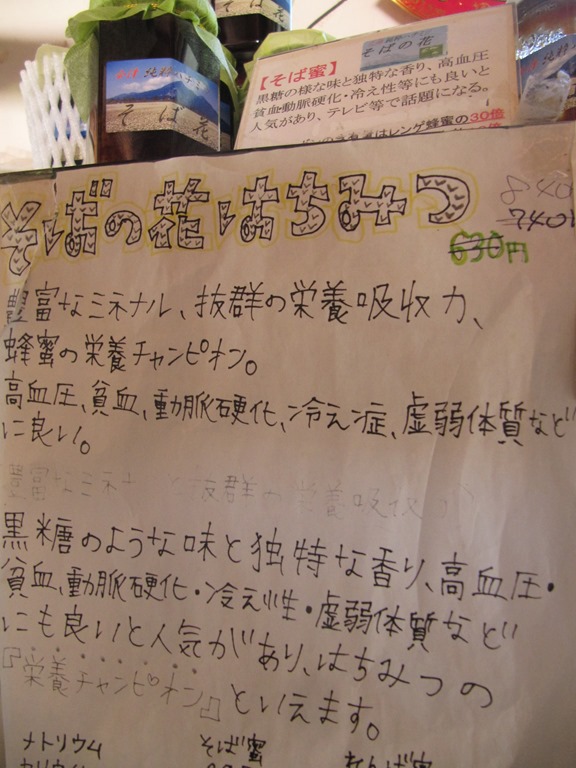 そば花
そばの花
【そば蜜】
黒糖の様な味と独特な香り、高血圧
貧血動脈硬化・冷え性等にも良いと
人気があり、テレビ等で話題になる。
はレンゲ蜂蜜の30倍
そばの花はちみつ
840
740円
630円
豊富なミネナル、抜群の栄養吸収力、
蜂蜜の栄養チャンピオン。
高血圧、貧血、動脈硬化、冷え症、虚弱体質など
に良い。
豊富なミネナ 抜群の栄養吸収力
黒糖のような味と独特な香り、高血圧・
貧血、動脈硬化・冷え性・虚弱体質など
にも良いと人気があり、はちみつの
『栄養チャンピオン』といえます。
ナトリウム そば蜜 れんげ蜜
カリウム